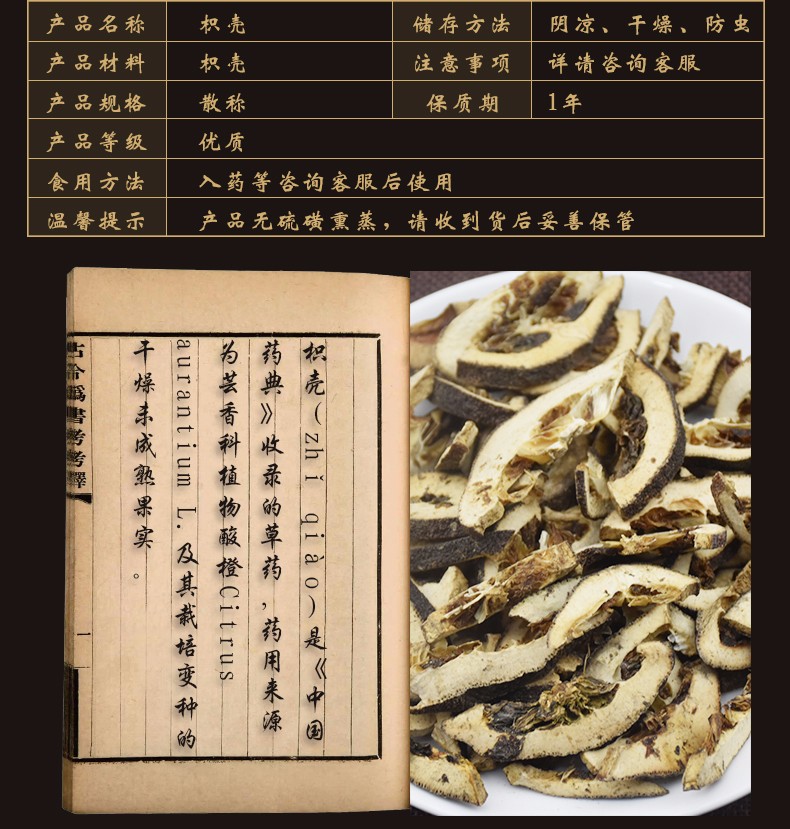 产品名称 枳壳 储存方法 阴凉、干燥、防虫
产品材料 枳壳 注意事项 详请咨询客服
产品规格 散称 保质期 1年
产品等级 优质
食用方法 入药等咨询客服后使用
温馨提示 产品无硫磺熏蒸，请收到货后妥善保管
枳壳(zhǐ qiào)是《中国
药典》收录的草药，药用来源
为芸香科植物酸橙Citrus
aurantium L.及其栽培变种的
干燥未成熟果实。
古今伪书考考释
一